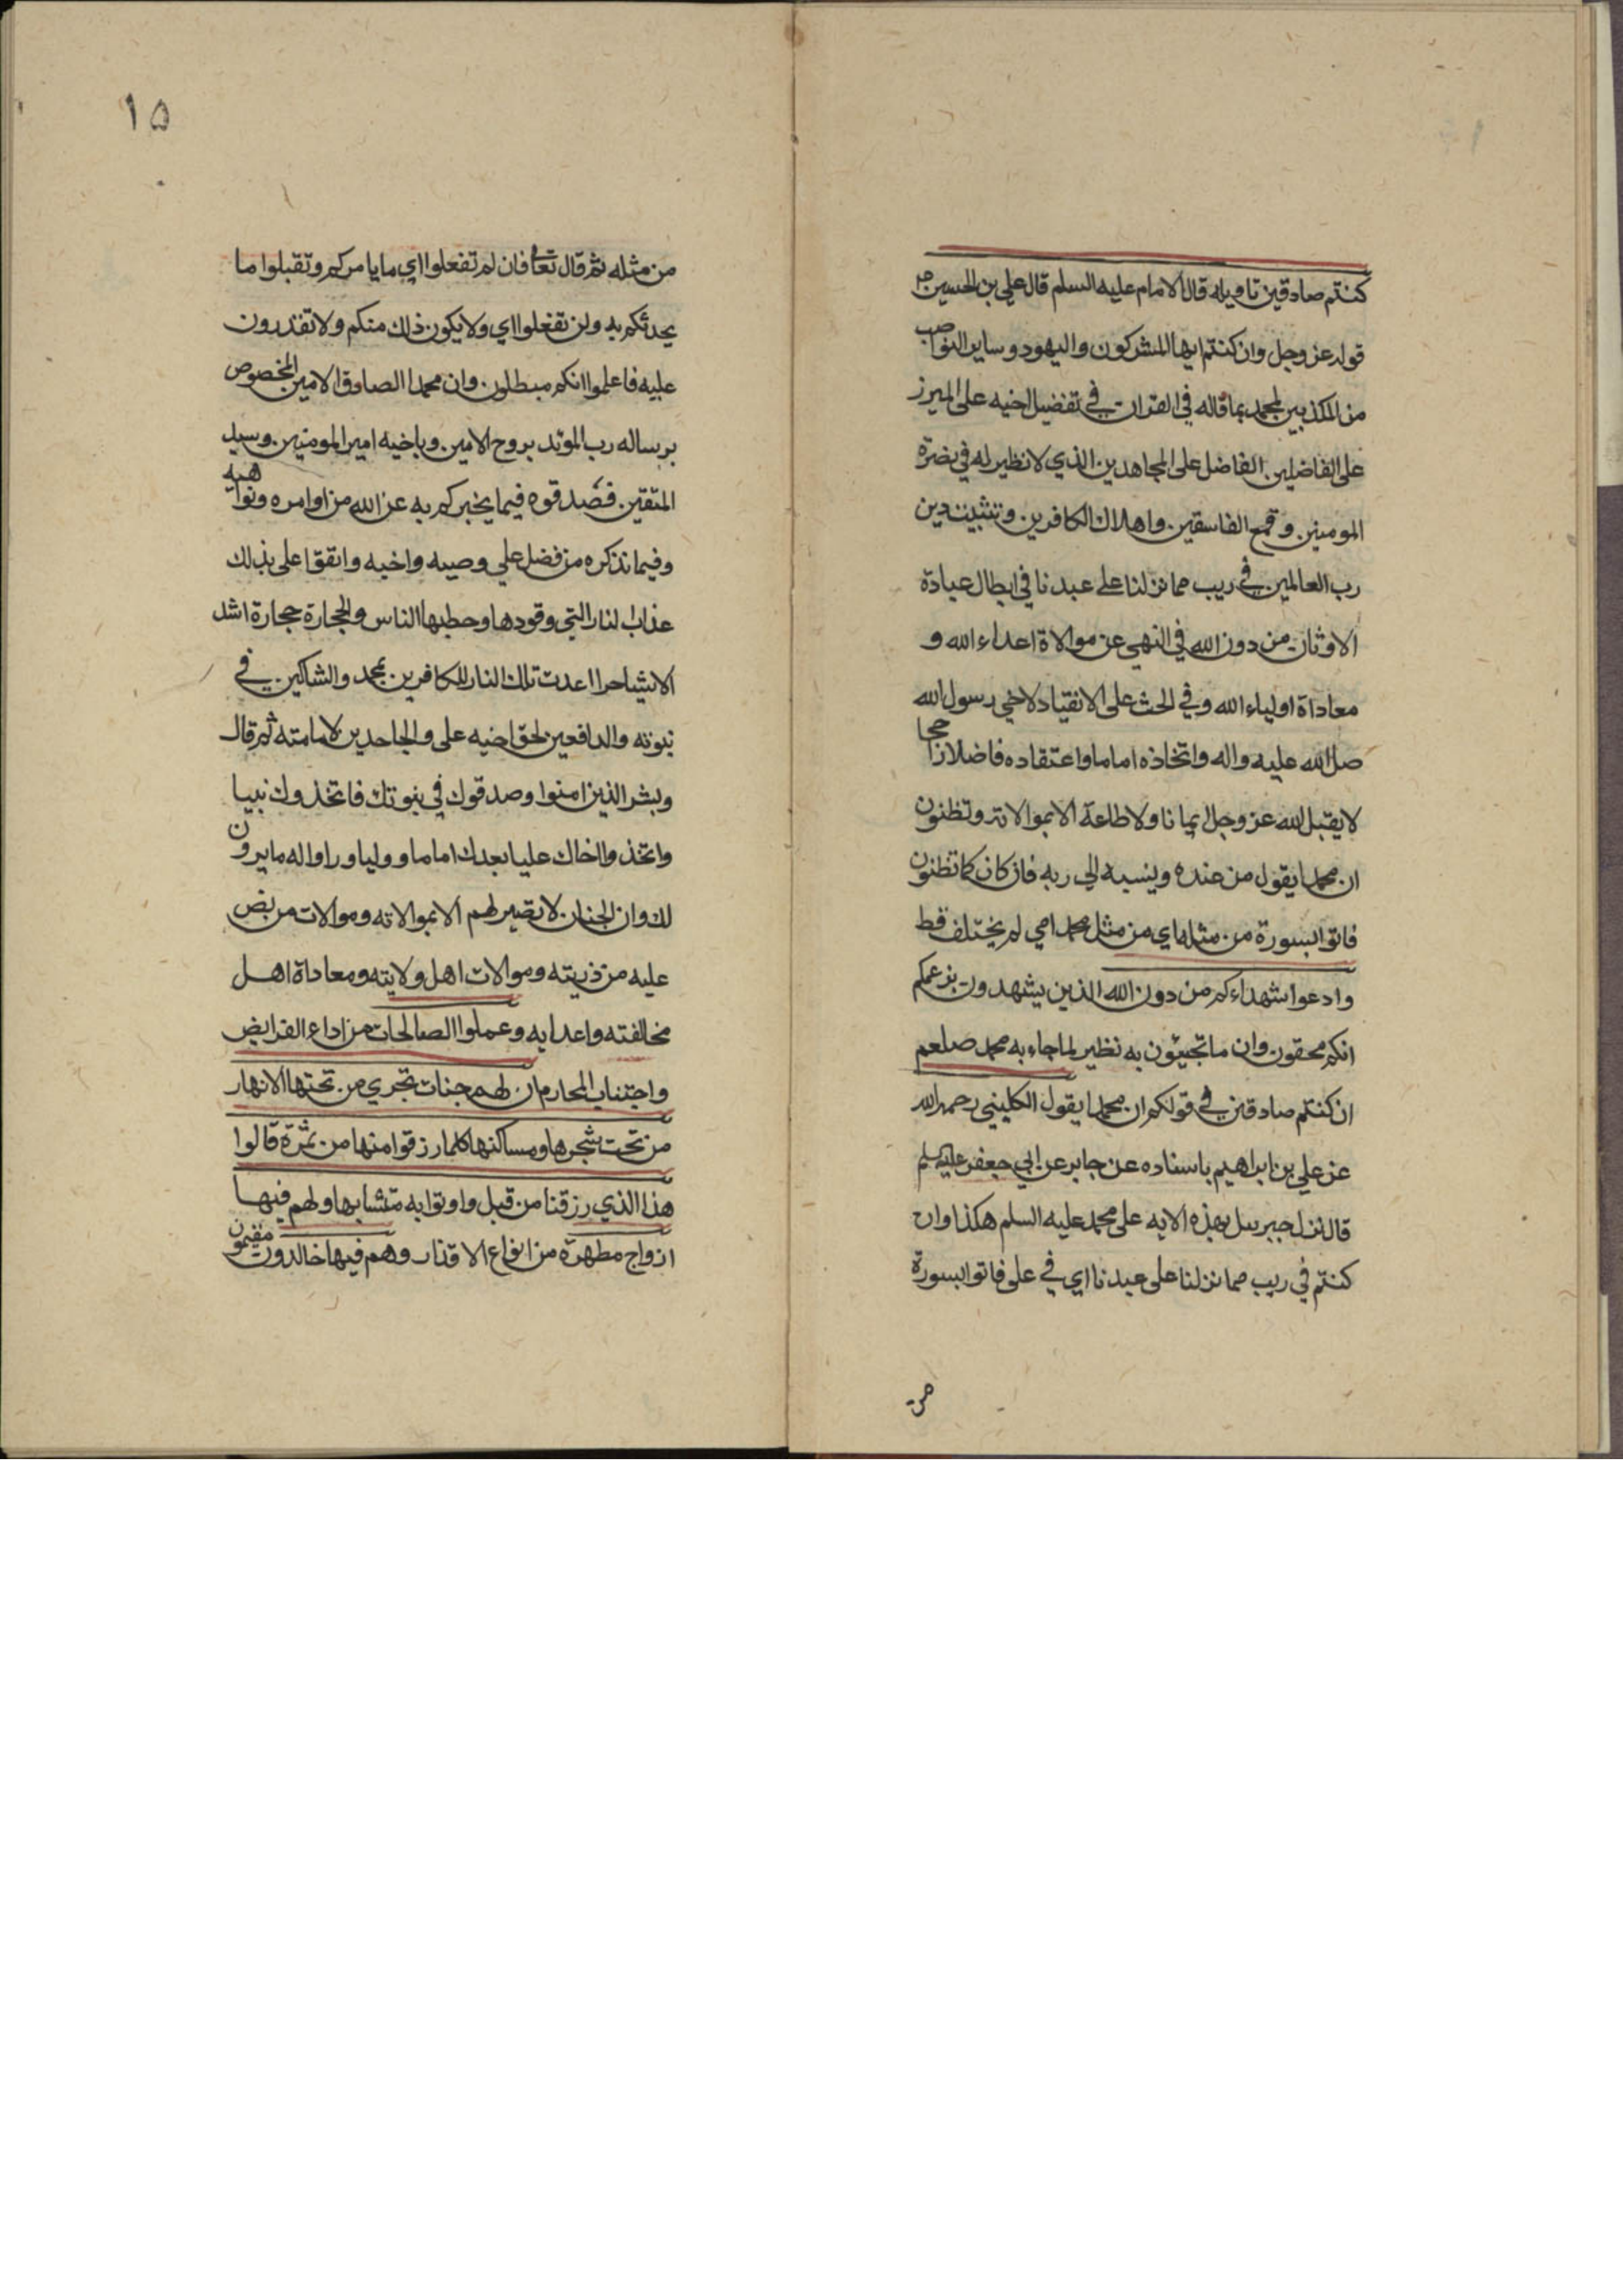 كنتم صادقين تاويله قال الامام عليه السلم قال علي بن الحسين
قوله عز وجل وان كنتم ايها المشركون واليهود وساير النواصب
من المكذبين لمحمد بما قاله في القران في تفضيل اخيه على المبرز
على الفاضلين الفاضل على المجاهدين الذي لا نظير له في نصرة
المومنين وقمع الفاسقين واهلاك الكافرين وتثبيت دين
رب العالمين في ريب مما نزلنا على عبدنا في ابطال عبادة
الاوثان من دون الله في النهي عن موالاة اعداء الله و
معاداة اولياء الله وفي الحث على الانقياد لاخي رسول الله
صلى الله عليه واله واتخاذه اماما واعتقاده فاضلا راجحا
لا يقبل الله عز وجل ايمانا ولا طاعة الا بموالاته وتظنون
ان محمدا يقول من عنده وينسبه الى ربه فان كان كما تظنون
فاتوا بسورة من مثله اي من مثل محمد امي لم يختلف قط
وادعوا شهداءكم من دون الله الذين يشهدون بزعمكم
انكم محقون وان ما تجيئون به نظير لما جاء به محمد صلعم
ان كنتم صادقين في قولكم ان محمدا يقول الكليني رحمه الله
عن علي بن ابراهيم باسناده عن جابر عن ابي جعفر عليه السلم
قال نزل جبريل بهذه الايه على محمد عليه السلم هكذا وان
كنتم في ريب مما نزلنا على عبدنا اي في على فاتوا بسورة
من
١٥
من مثله ثم قال تعالى فان لم تفعلوا اي ما يامركم وتقبلوا ما
يحدثكم به ولن تفعلوا اي ولا يكون ذلك منكم ولا تقدرون
عليه فاعلموا انكم مبطلون وان محمدا الصادق الامين المخصوص
برساله رب الموئد بروح الامين وباخيه امير المومنين وسيد
المتقين فصدقوه فيما يخبركم به عن الله من اوامره ونواهيه
وفيما نذكره من فضل علي وصيه واخيه واتقوا على بذلك
عذاب النار التي وقودها وحطبها الناس والحجارة حجارة اشد
الاشيا حرا اعدت تلك النار للكافرين بمحمد والشاكين في
نبوته والدافعين لحق اخيه على والجاحدين لامامته ثم قال
وبشر الذين امنوا وصدقوك في نبوتك فاتخذوك نبيا
واتخذوا اخاك عليا بعدك اماما ووليا وراواله ما يرون
لك وان الجنان لا تصير لهم الا بموالاته وموالات من نص
عليه من ذريته وموالات اهل ولايته ومعاداة اهل
مخالفته واعدايه وعملوا الصالحات من اداء الفرايض
واجتناب المحارم ان لهم جنات تجري من تحتها الانهار
من تحت شجرها ومساكنها كلما رزقوا منها من ثمرة قالوا
هذا الذي رزقنا من قبل واوتوا به متشابها ولهم فيها
ازواج مطهرة من انواع الاقذار وهم فيها خالدون مقيمون